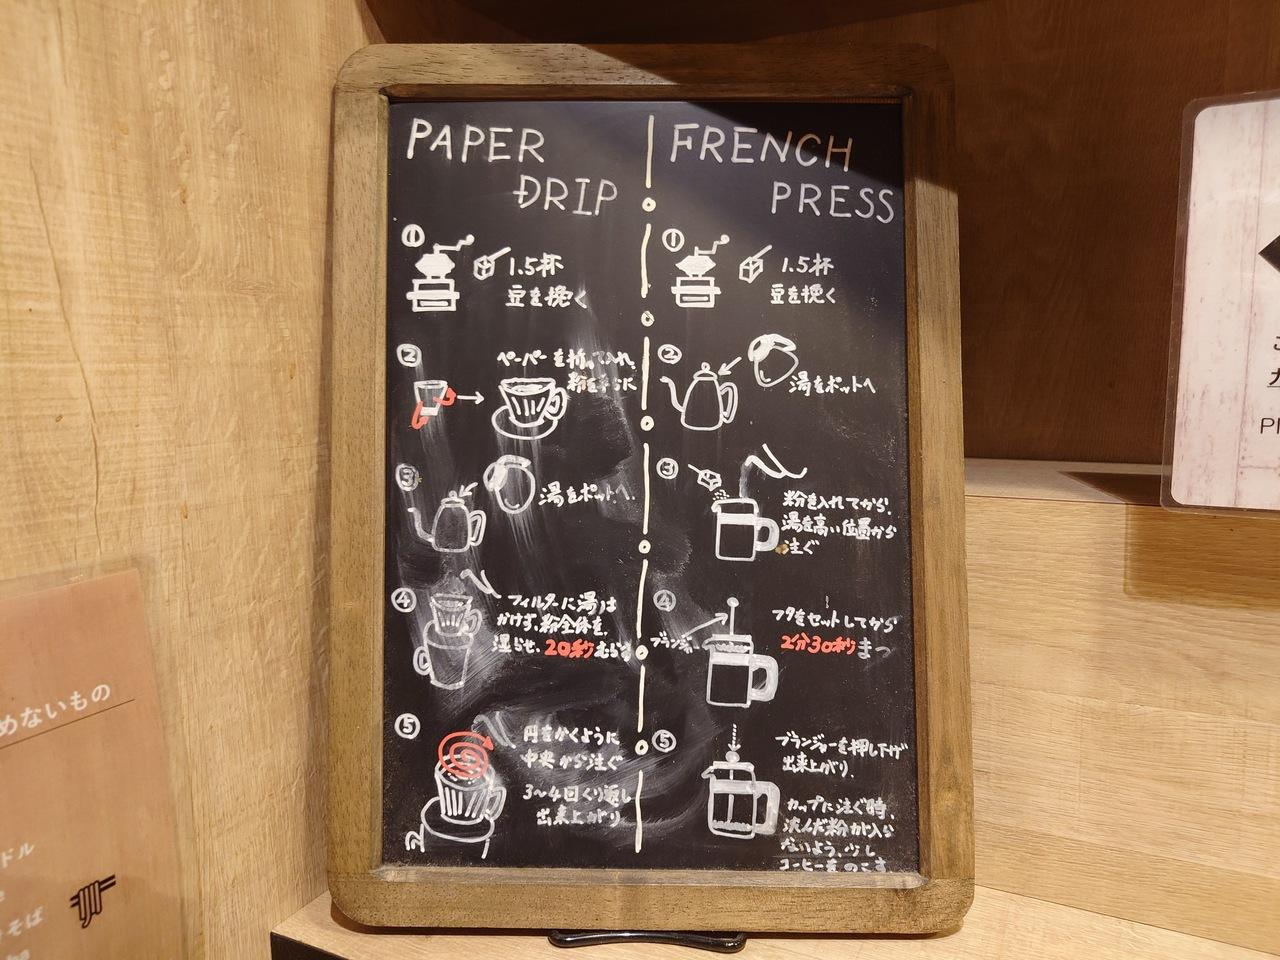 PAPER
DRIP
①
1.5杯
豆を挽く
②
ペーパーを折って入れ
粉を平らに
③
湯をポットへ
④
フィルターに湯は
かけず、粉全体を
湿らせ、20秒むらす
⑤
円をかくように
中央から注ぐ
3〜4回くり返し
出来上がり
FRENCH
PRESS
①
1.5杯
豆を挽く
②
湯をポットへ
③
粉を入れてから、
湯を高い位置から
注ぐ
④
プランジャー
フタをセットしてから
2分30秒まつ
⑤
プランジャーを押し下げ
出来上がり、
カップに注ぐ時、
沈んだ粉が入ら
ないよう、少し
コーヒーをのこす
めないもの
ドル
そば
PI